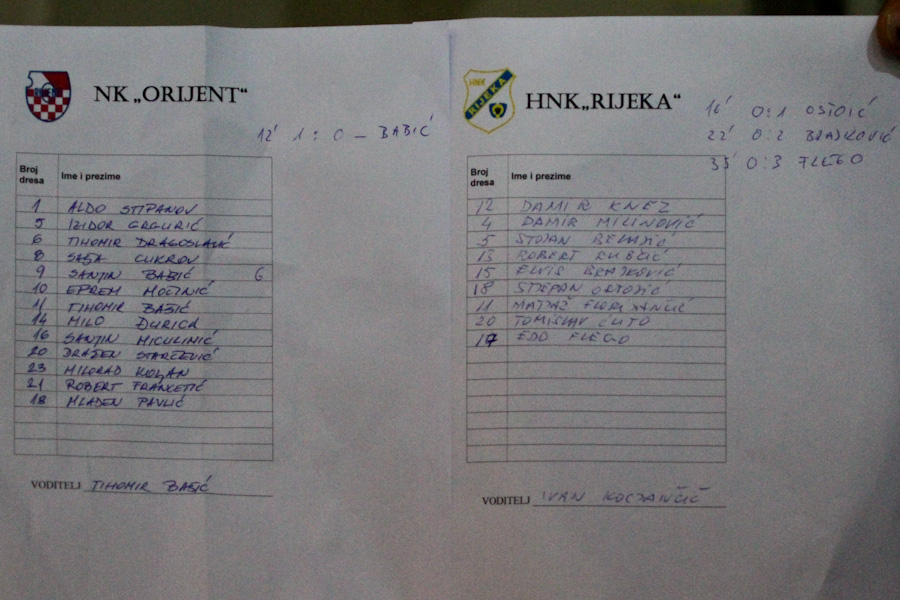 NK „ORIJENT“
12' 1:0 - BABIĆ
Broj dresa Ime i prezime
1 ALDO STIPANOV
5 IZIDOR GRGURIĆ
6 TIHOMIR DRAGOSLAVIĆ
8 SAŠA CUKROV
9 SANTIN BABIĆ 6
10 EPREM MOČINIĆ
11 TIHOMIR BAŠIĆ
14 MILO ĐURICA
16 SANTIN MICULINIĆ
20 DRAŽEN STARČEVIĆ
23 MILORAD KOLJAN
21 ROBERT FRANCETIĆ
18 MLADEN PAVLIĆ
VODITELJ TIHOMIR BAŠIĆ
HNK RIJEKA
HNK„RIJEKA“
16' 0:1 OSTOIĆ
22' 0:2 BRAJKOVIĆ
35' 0:3 FLEGO
Broj dresa Ime i prezime
12 DAMIR KNEZ
4 DAMIR MILINOVIĆ
5 STOJAN
13 ROBERT RUBČIĆ
15 ELVIS BRAJKOVIĆ
18 STJEPAN
11 MATJAŽ FLORIJANČIČ
20 TOMISLAV ĆUTO
17 EDO FLEGO
VODITELJ IVAN KOCJANČIĆ